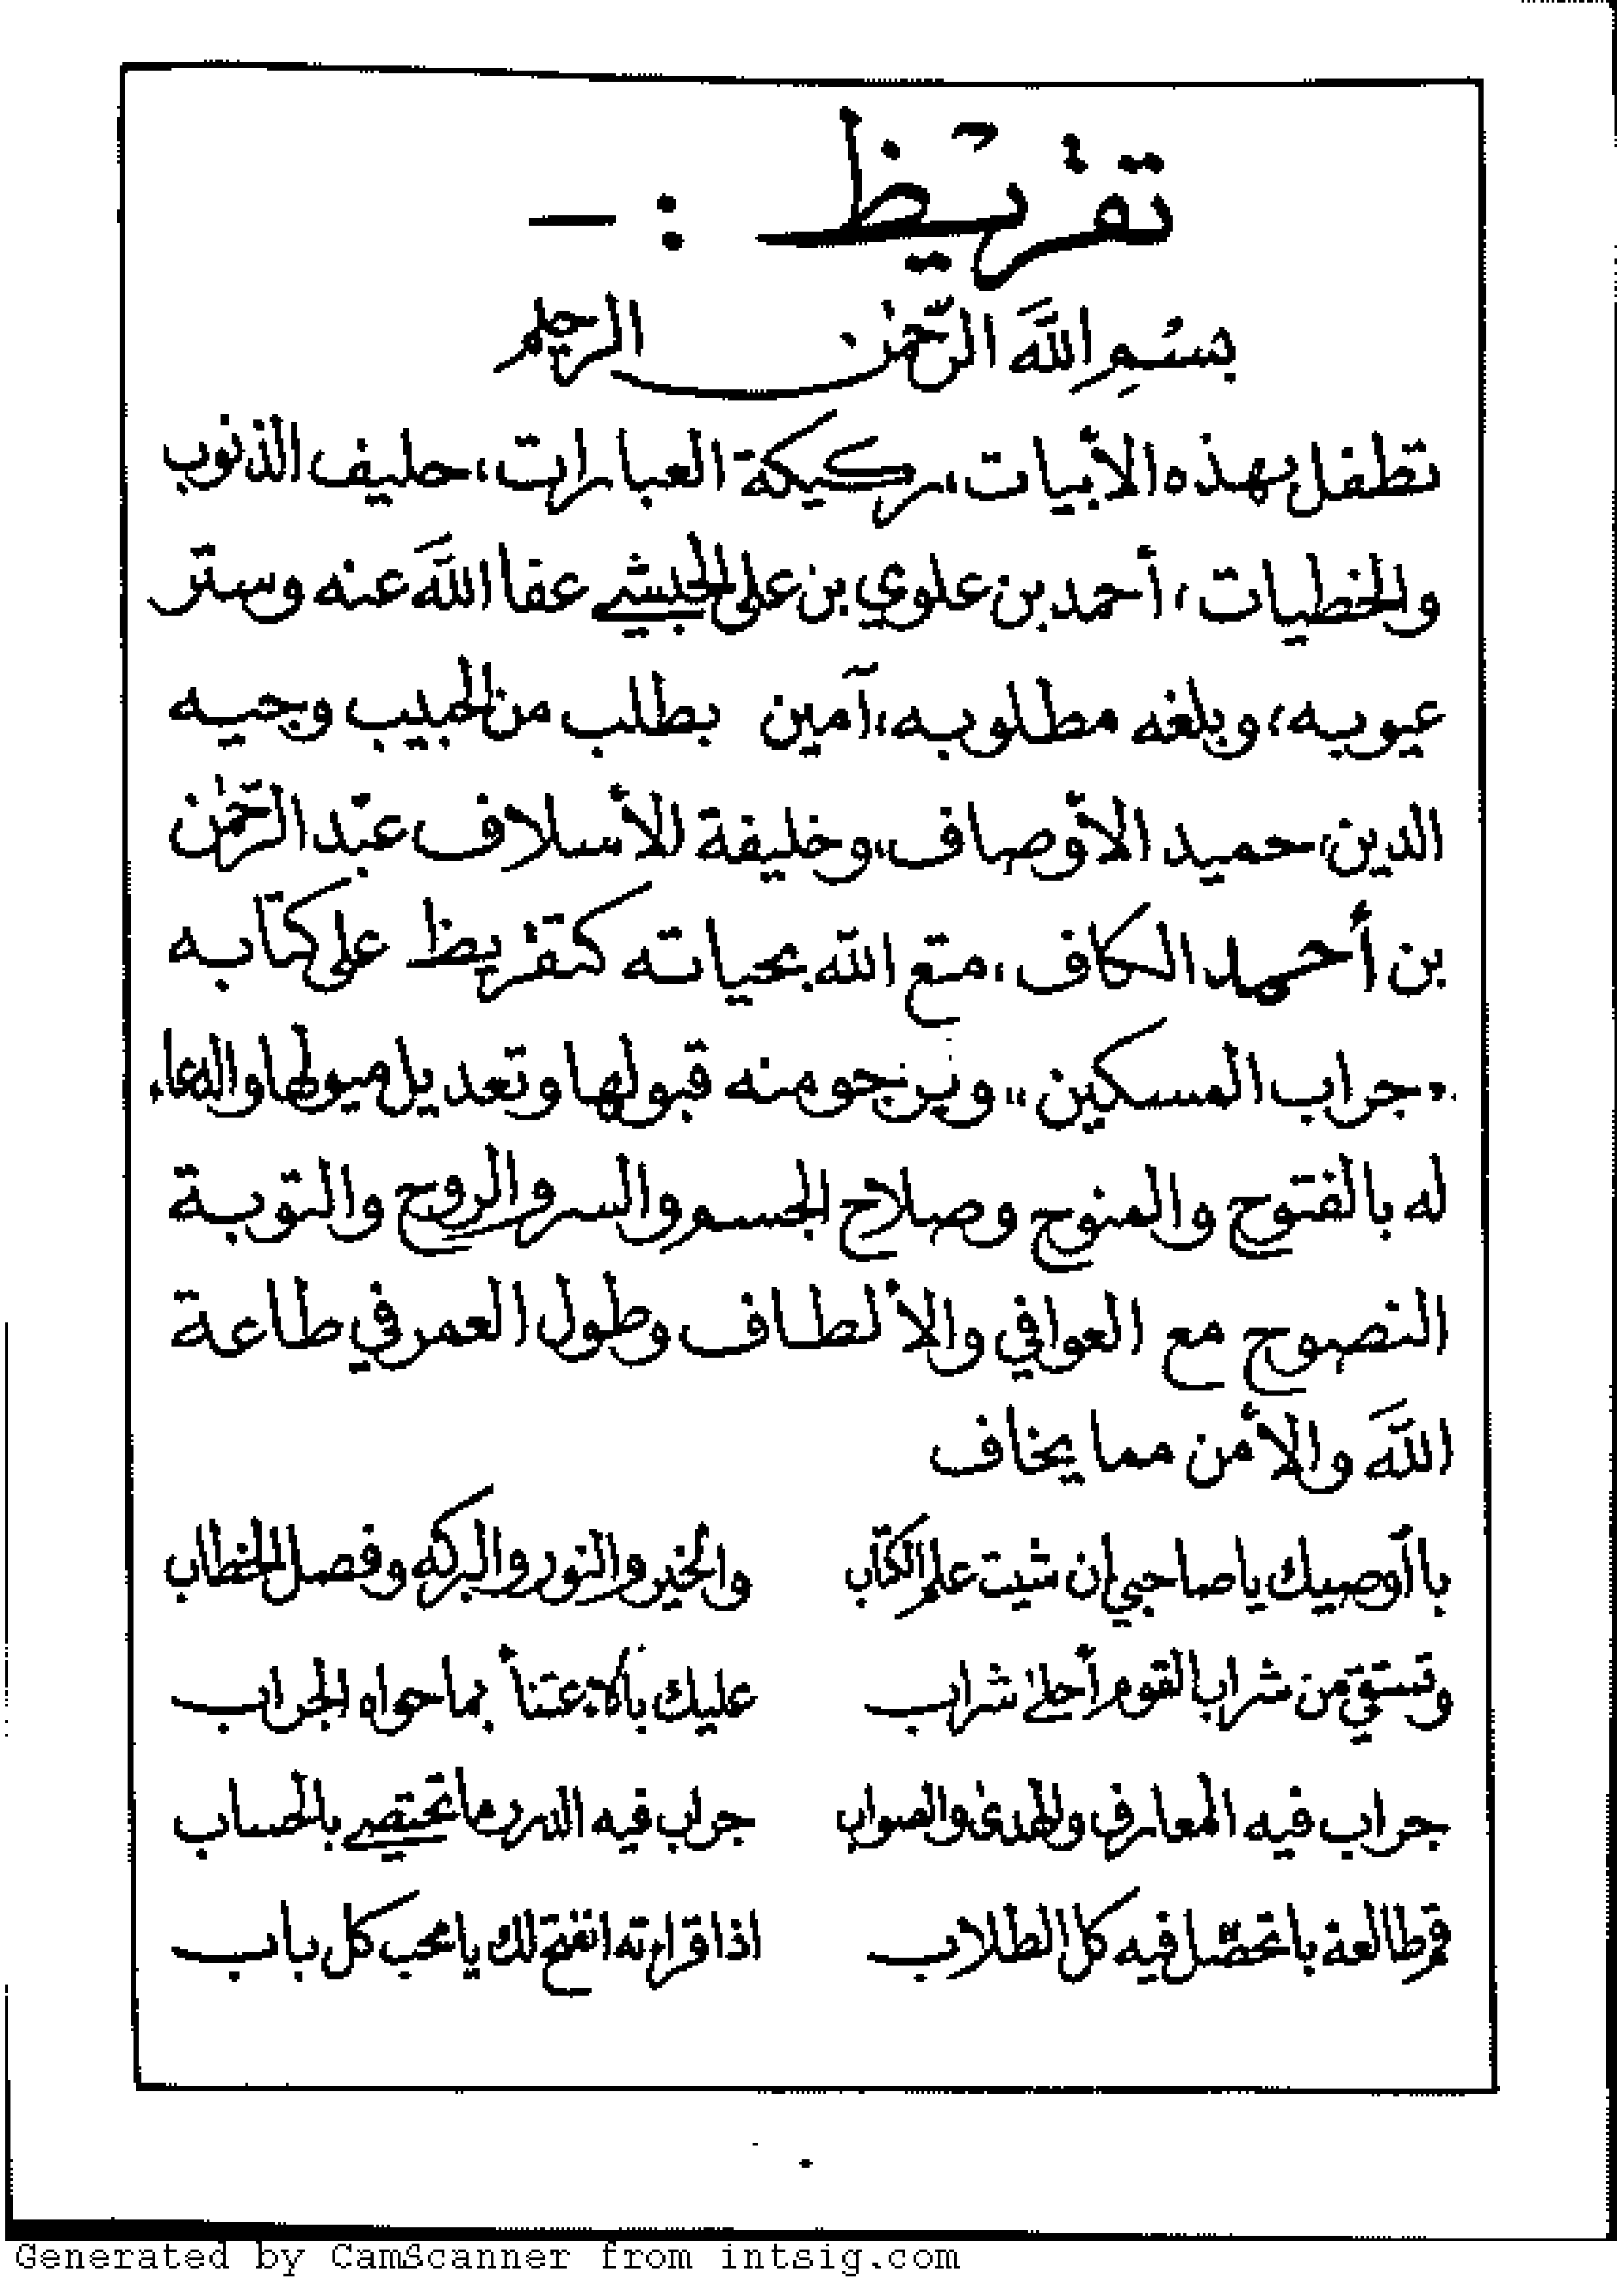 تقريظ : -
بسم الله الرحمن الرحيم
تطفل بهذه الأبيات، ركيكة العبارات، حليف الذنوب
والخطيات، أحمد بن علوي بن علي الحبشي عفا الله عنه وستر
عيوبه، وبلغه مطلوبه، آمين بطلب من الحبيب وجيه
الدين، حميد الأوصاف، وخليفة الأسلاف عبد الرحمن
بن أحمد الكاف، متع الله بحياته كتقريظ على كتابه
،،جراب المسكين،، ويرجو منه قبولها وتعديل ميولها والدعاء
له بالفتوح والمنوح وصلاح الجسم والسر والروح والتوبة
النصوح مع العوافي والألطاف وطول العمر في طاعة
الله والأمن مما يخاف
باأوصيك ياصاحبي إن شيت علم الكتاب والخير والنور والبركه وفصل الخطاب
وتستقي من شراب القوم أحلى شراب عليك بالاعتنأ بما حواه الجراب
جراب فيه المعارف والهدى والصواب جراب فيه الدرر ما تحتصي بالحساب
قم طالعه با تحصل فيه كل الطلاب اذا قراته انفتح لك يا محب كل باب
Generated by CamScanner from intsig.com